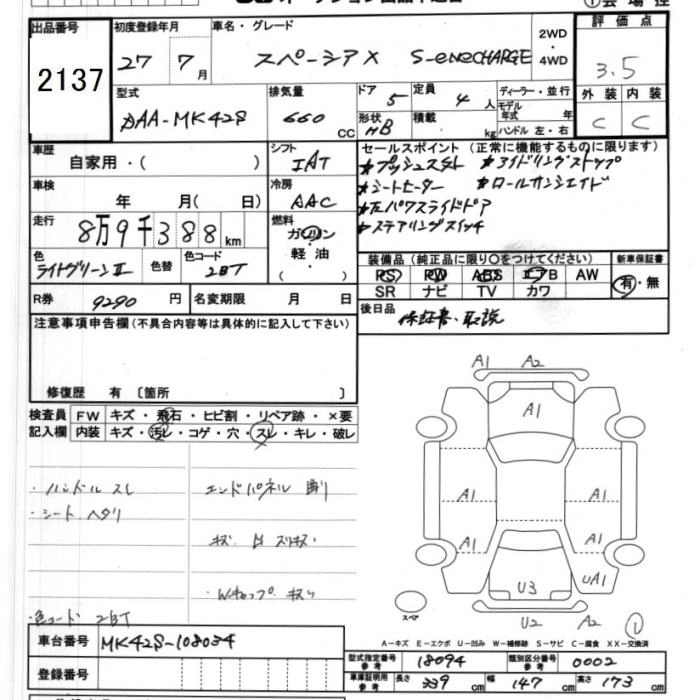 ①会場控
出品番号 初度登録年月 車名・グレード 評価点
2137 27 7月 スペーシア X S-eneCHARGE 2WD・4WD 3.5
型式 排気量 ドア 定員 ディーラー・並行 外装 内装
DAA-MK42S 660 CC 5 4 人 モデル年式 年 C C
形状 HB 積載 kg ハンドル 左・右
車歴 自家用・( ) シフト IAT セールスポイント (正常に機能するものに限ります)
★プッシュスタート ★アイドリングストップ
車検 年 月( 日) 冷房 AAC ★シートヒーター ★ロールサンシェイド
★左パワスライドドア
走行 8万9千388km 燃料 ガソリン・軽油・( ) ★ステアリングスイッチ
色 ライトグリーンII 色替 色コード 2BT 装備品 (純正品に限り○をつけてください) 新車保証書
PS PW ABS エアB AW 有・無
SR ナビ TV カワ
R券 9290 円 名変期限 月 日 後日品 保証書・取説
注意事項申告欄 (不具合内容等は具体的に記入して下さい)
修復歴 有 〔箇所 〕
検査員記入欄 FW キズ・飛石・ヒビ割・リペア跡・×要
内装 キズ・汚レ・コゲ・穴・スレ・キレ・破レ
A1 A2
A1
・ハンドル スレ エンドパネル
・シート ヘタリ
A1 A1
キズ スリキズ
A1 A1
・Wキャップ キズ
U3 UA1
スペア U2 A2 ①
・色コード 2BT
A-キズ E-エクボ U-凹み W-補修跡 S-サビ C-腐食 XX-交換済
車台番号 MK42S-108034
型式指定番号参考 18094 類別区分番号参考 0002
登録番号 車庫証明用参考 長さ 339 cm 幅 147 cm 高さ 173 cm